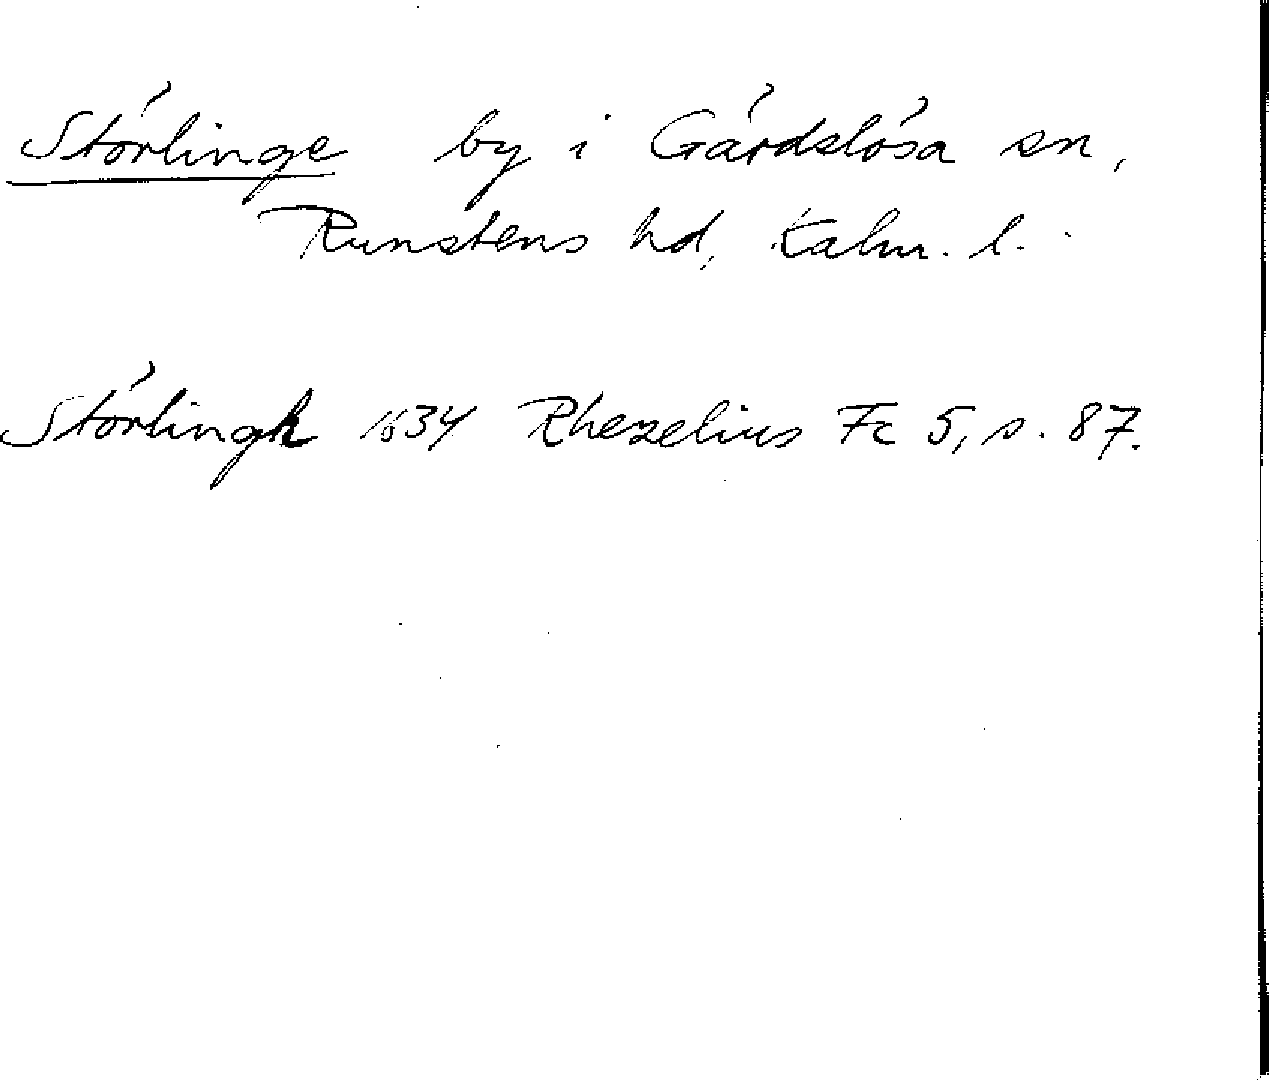 Störlinge by i Gärdslösa sn,
Runstens hd, Kalm. l.
Störlingh 1634 Rhezelius Fc 5, s. 87.